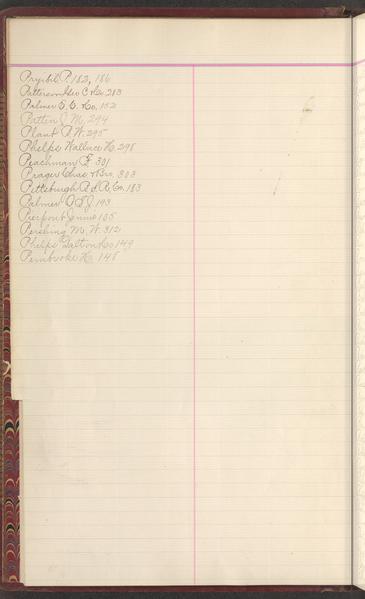 Pryibil P. 182, 186
Patterson Geo C & Co. 283
Palmer E. C. & Co. 152
Patten J. M. 294
Plant A. W. 295
Phelps Wallace H. 298
Peachman F. 301
Prager Chas & Bro. 303
Pittsburgh R. & R. Co. 183
Palmer D. D. J. 193
Pierpont Jennie 105
Pershing M. W. 312
Phelps Dalton & Co 149
Pembroke H. 148